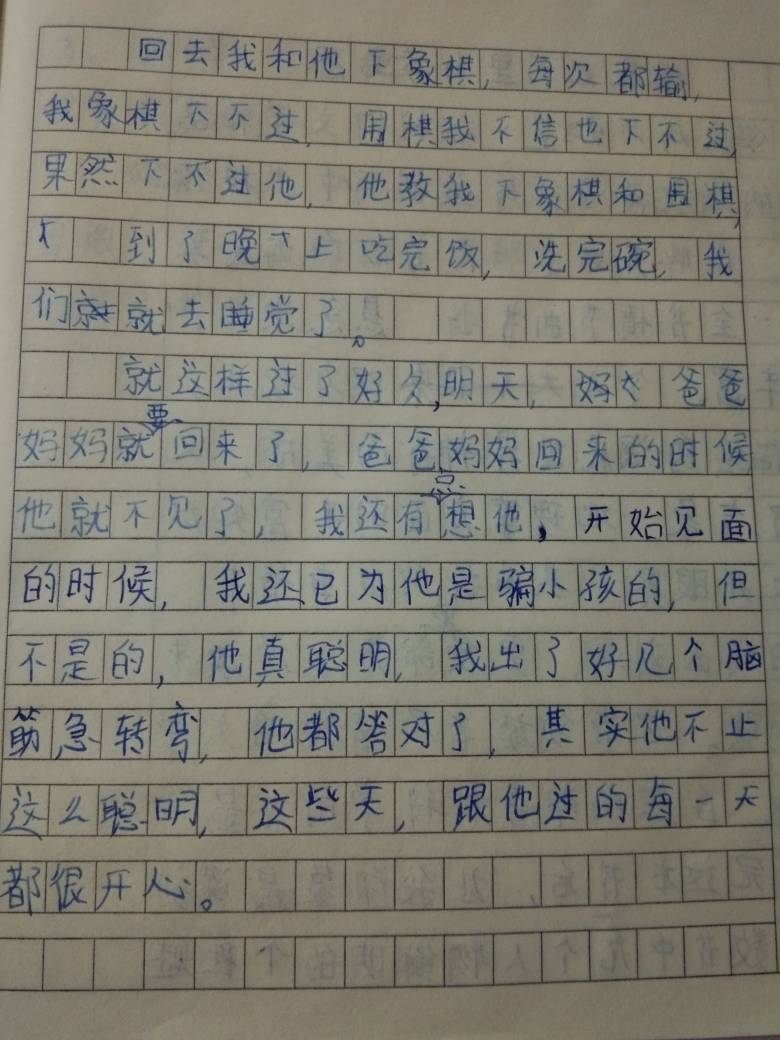 回去我和他下象棋,每次都输,
我象棋下不过,围棋我不信也下不过,
果然下不过他,他教我下象棋和围棋,
到了晚上吃完饭,洗完碗,我
们就去睡觉了。
就这样过了好久,明天,妈爸爸
妈妈就要回来了,爸爸妈妈回来的时候
他就不见了,我还有点想他,开始见面
的时候,我还已为他是骗小孩的,但
不是的,他真聪明,我出了好几个脑
筋急转弯,他都答对了,其实他不止
这么聪明,这些天,跟他过的每一天
都很开心。